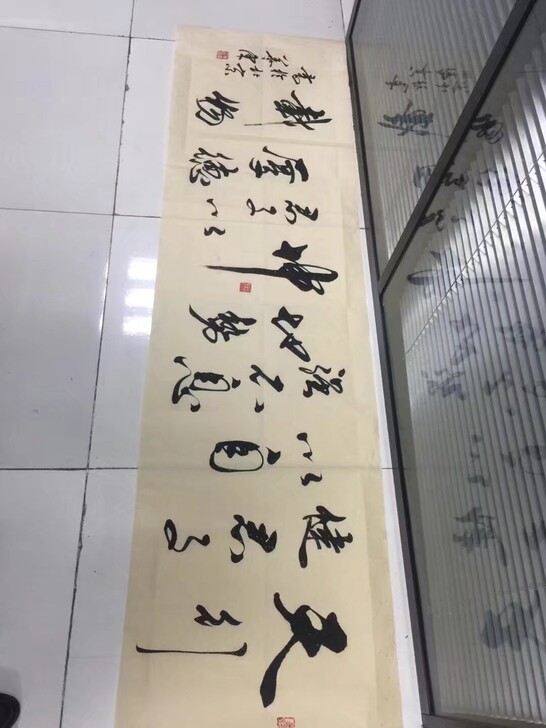 天行
健君子
以自
强不息
地势
坤
君子以
厚德
载物